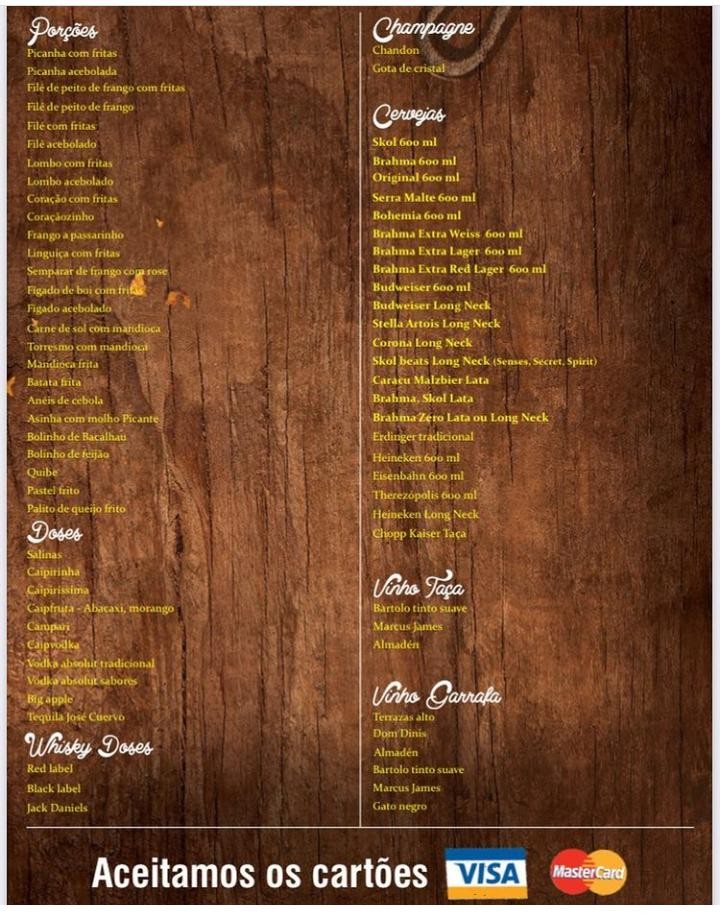 Porções
Picanha com fritas
Picanha acebolada
Filé de peito de frango com fritas
Filé de peito de frango
Filé com fritas
Filé acebolado
Lombo com fritas
Lombo acebolado
Coração com fritas
Coraçãozinho
Frango a passarinho
Linguiça com fritas
Semparar de frango com rose
Fígado de boi com fritas
Fígado acebolado
Carne de sol com mandioca
Torresmo com mandioca
Mandioca frita
Batata frita
Anéis de cebola
Asinha com molho Picante
Bolinho de Bacalhau
Bolinho de feijão
Quibe
Pastel frito
Palito de queijo frito
Doses
Salinas
Caipirinha
Caipiríssima
Caipfruta - Abacaxi, morango
Campari
Caipvodka
Vodka absolut tradicional
Vodka absolut sabores
Big apple
Tequila José Cuervo
Whisky Doses
Red label
Black label
Jack Daniels
Champagne
Chandon
Gota de cristal
Cervejas
Skol 600 ml
Brahma 600 ml
Original 600 ml
Serra Malte 600 ml
Bohemia 600 ml
Brahma Extra Weiss 600 ml
Brahma Extra Lager 600 ml
Brahma Extra Red Lager 600 ml
Budweiser 600 ml
Budweiser Long Neck
Stella Artois Long Neck
Corona Long Neck
Skol beats Long Neck (Senses, Secret, Spirit)
Caracu Malzbier Lata
Brahma, Skol Lata
Brahma Zero Lata ou Long Neck
Erdinger tradicional
Heineken 600 ml
Eisenbahn 600 ml
Therezópolis 600 ml
Heineken Long Neck
Chopp Kaiser Taça
Vinho Taça
Bartolo tinto suave
Marcus James
Almadén
Vinho Garrafa
Terrazas alto
Dom Dinis
Almadén
Bartolo tinto suave
Marcus James
Gato negro
Aceitamos os cartões
VISA
MasterCard